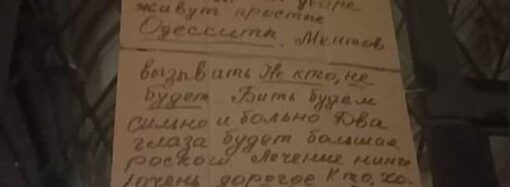 дворе
живут простые
Одесситы. Ментов
вызывать Не кто, не
будет Бить будем
сильно и больно Два
глаза будет большая
роскош Лечение нине
очень дорогое Кто, хо-